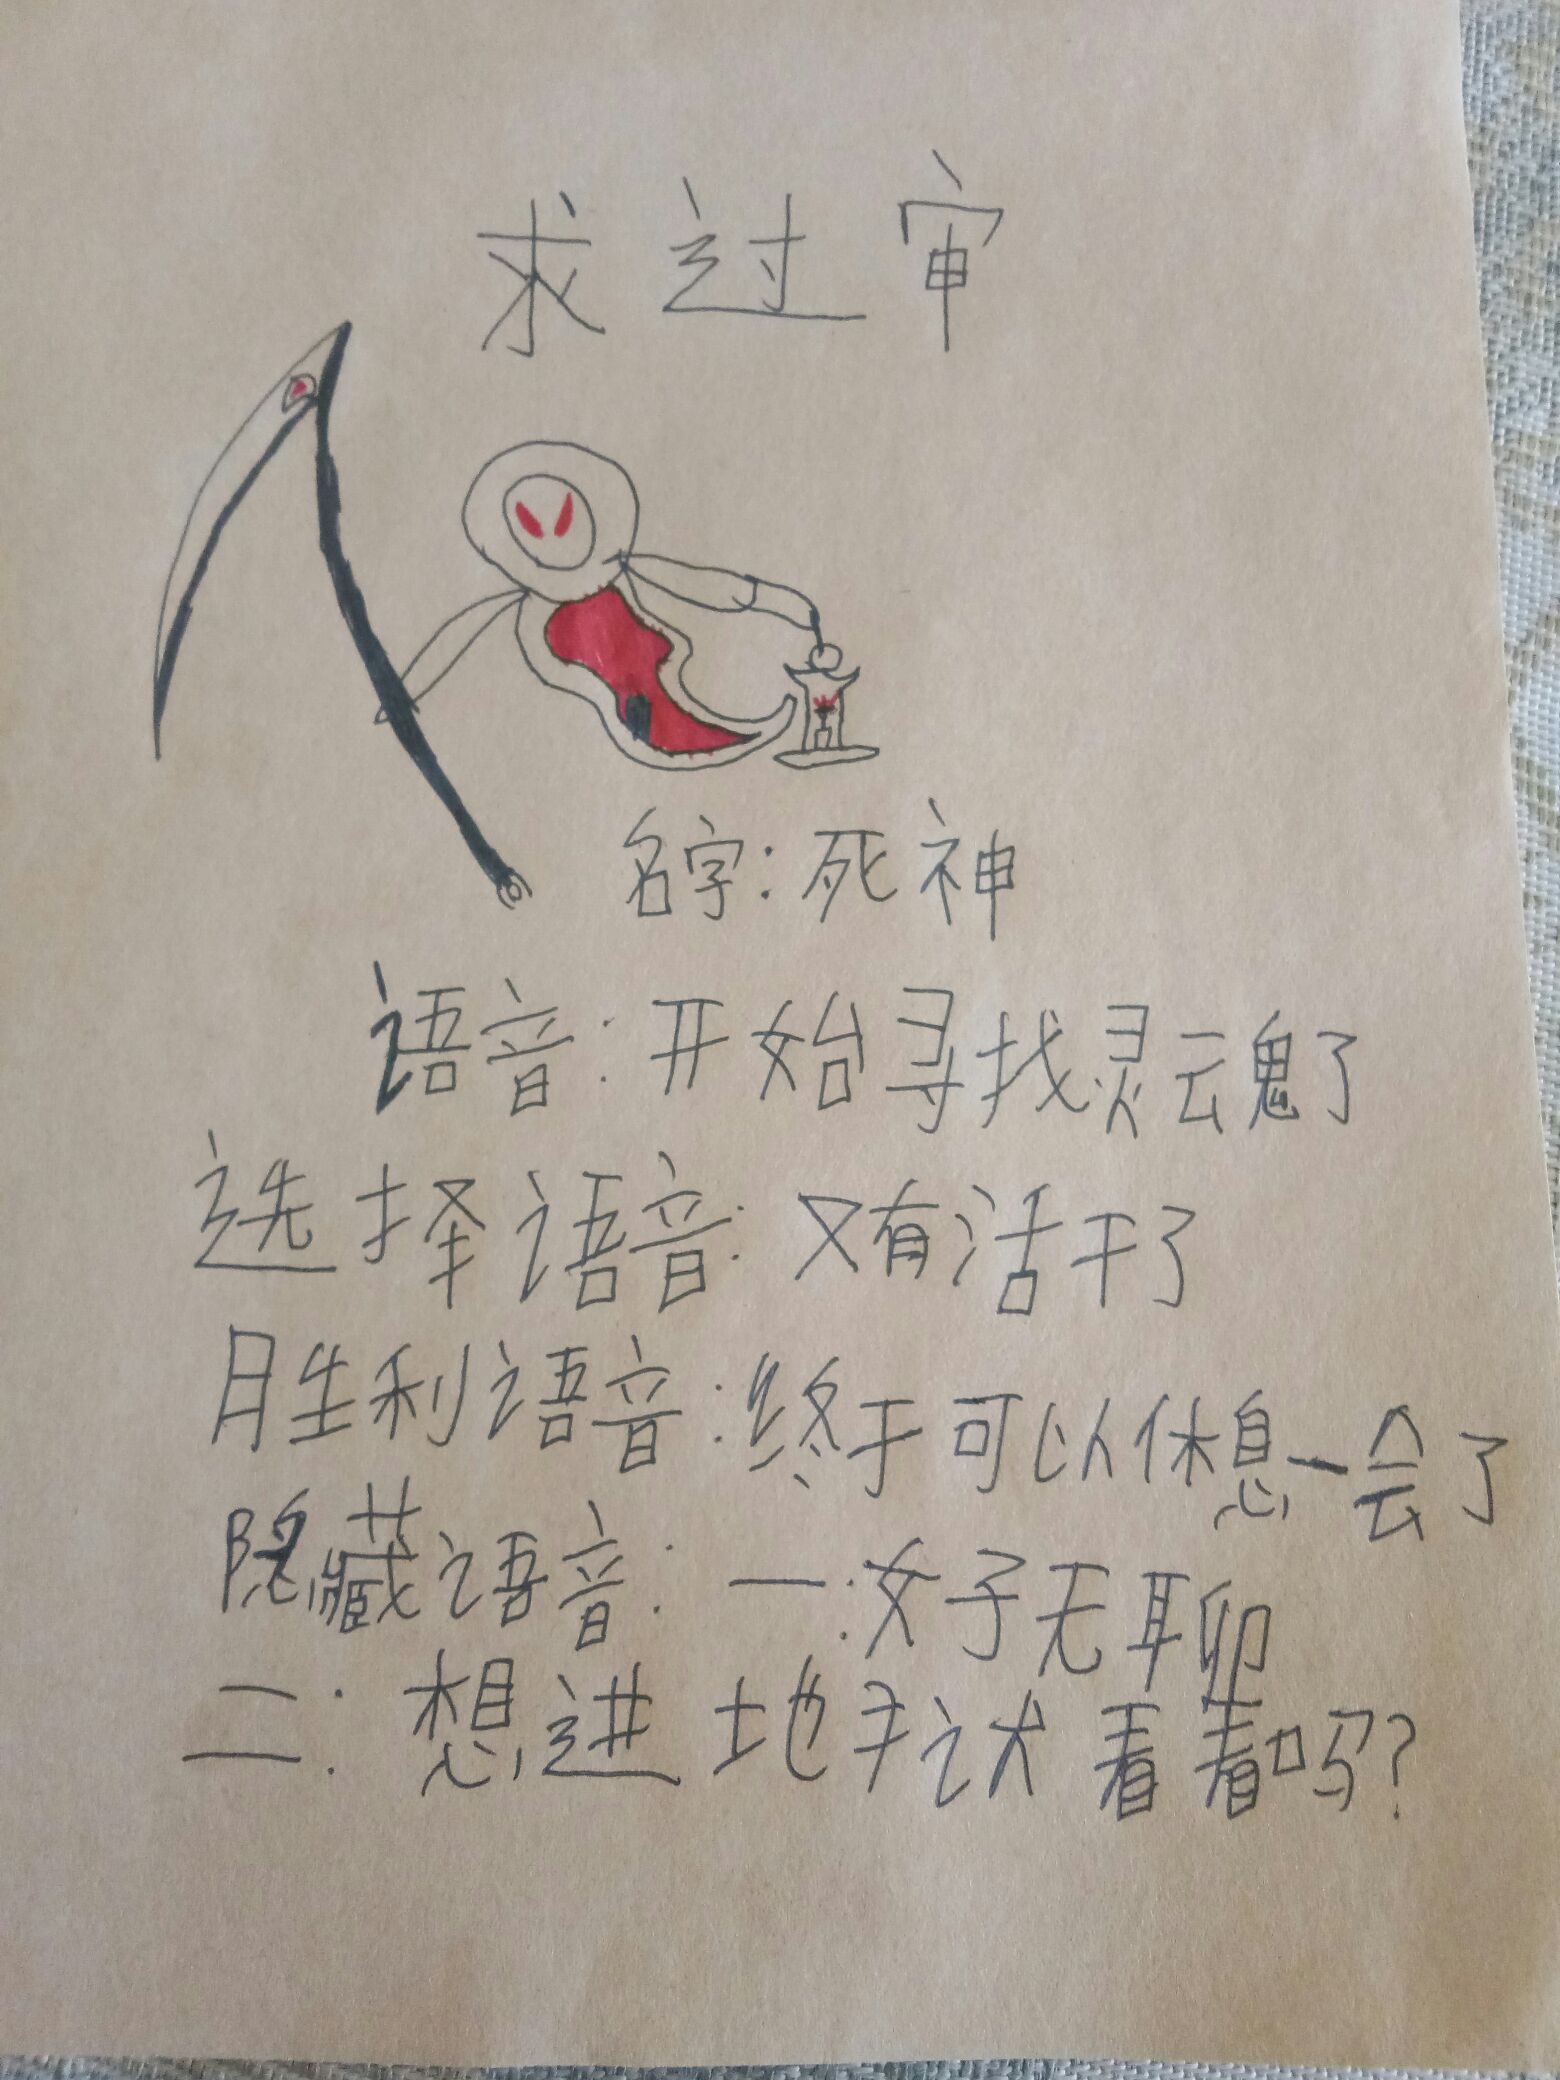 求过审
名字:死神
语音:开始寻找灵魂了
选择语音:又有活干了
胜利语音:终于可以休息一会了
隐藏语音:一:好无聊
二:想进地狱看看吗?